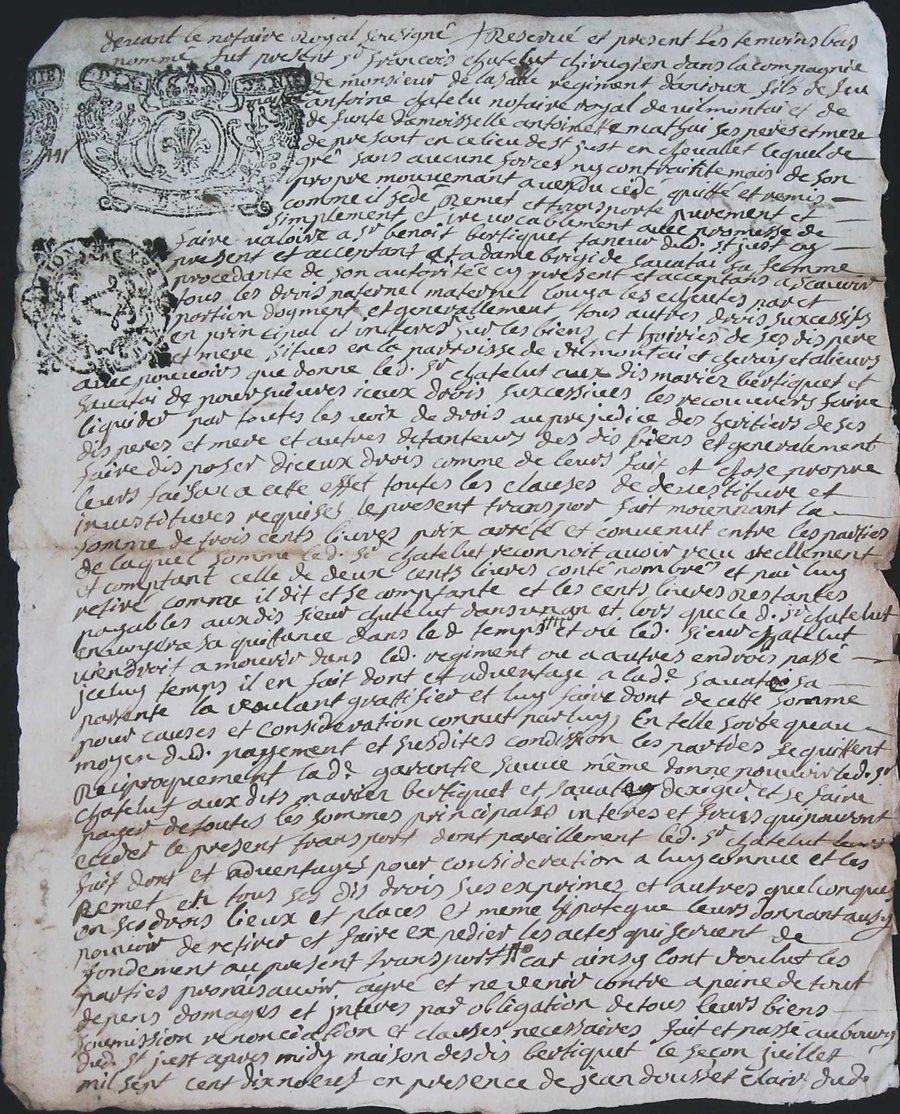 devant le notaire Royal soussigné + Reservé et present Les temoins bas
nommé fut present Sr francois chatelut chirugien dans la compagnie
de monsieur de la salle regiment d'anioux fils de feu
antoine chatelu notaire royal de vilmontai et de
de funte damoisselle antoinete mathai ses peres et mere
de present en ce lieu de st just en chevallet lequel de
gré sans aucune forces ny contrainte mais de son
propre mouvemant a vendu cedé quitté et remis
comme il sede Remet et transporte purement et
simplement et irevocablement avec promesse de
faire valoire a Sr benoit bertiquet taneur dud. st just cy
present et acceptant et a dame brigide savatai sa femme
procedante de son autoritée cy present et acceptans a scavoir
tous les drois paternel maternel
portion dogment et generallement tous autres drois suxcessifs
en principal et interes sur les biens et hoiries de ses dis pere
et mere situes en la parroisse de vilmontai et et alieurs
avec pouvoirs que donne led. Sr chatelut aux dis mariez bertiquet et
savatai de poursuivres iceux drois suxcessives les recouvers faire
liquider par toutes les voix de drois au prejudice des heritiers de ses
dis peres et mere et autres detanteurs des dis biens et generalement
faire dis poser diceux drois comme de leurs fait et chose propre
leurs faisan a cette effet toutes les clauses de devestiture et
investitures requises le present transpor fait moiennant la
somme de trois cents livres prix arreté et convenut entre les parties
de laquel somme led. Sr chatelut reconnoit avoir recu reellement
et comptant celle de deux cents livres conté nombrée et par luy
retiré comme il dit et se comptante et les cents livres restantes
payables aux dis sieur chatelut dans un an et lors que le d. Sr chatelut
en voyera sa quittance dans led temps et ou led. sieur chatelut
viendroit a mourir dans led. regiment ou a autres endrois passé
iceluy temps il en fait dont et adventage a lade savatai sa
parante la voulant gratiffier et luy faire dont de cette somme
pour causes et consideration connut par luy En telle sorte quau
moyen dud. payement et susdites condission les parties se quittent
Reciproquement lade garantie sauve même donne pouvoir led. Sr
chatelut aux dits mariez bertiquet et savatai dexiger et se faire
payer de toutes les sommes principales interes et frais qui pouront
exceder le present transport dont pareillement led. Sr chatelut leurs
fait dont et adventages pour consideration a luy connue et les
Remet en tous ses dis drois sus exprimez et autres quelconque
en ses drois lieux et places et meme ipoteque leurs donnant aussy
pouvoir de retirer et faire expedier les actes qui servent de
fondement au present transport car ainsy lont voulut les
parties promis avoir agré et ne venir contre a peine de tout
depens domages et interes par obligation de tous leurs biens
soumission renonciation et clauses necessaires fait et passé au bourg
dud. st just apres midy maison des dis bertiquet le secon juillet
mil sept cent dix noeuf en presence de jean dousset clair dud.